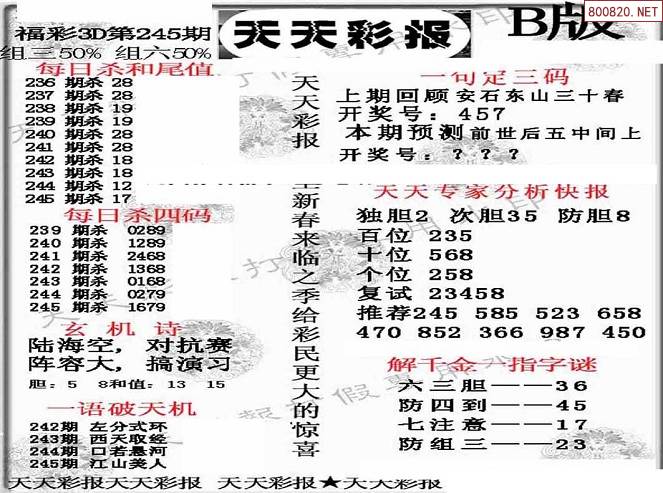 福彩3D第245期
组三50% 组六50%
天天彩报
B版
800820.NET
每日杀和尾值
236 期杀 28
237 期杀 28
238 期杀 19
239 期杀 19
240 期杀 28
241 期杀 28
242 期杀 18
243 期杀 18
244 期杀 12
245 期杀 17
每日杀四码
239 期杀 0289
240 期杀 1289
241 期杀 2468
242 期杀 1368
243 期杀 0168
244 期杀 0279
245 期杀 1679
玄机诗
陆海空，对抗赛
阵容大，搞演习
胆：5 8和值：13 15
一语破天机
242期 左分式环
243期 西天取经
244期 口若悬河
245期 江山美人
天天彩报
新春来临之季给彩民更大的惊喜
一句定三码
上期回顾 安石东山三十春
开奖号：457
本期预测 前世后五中间上
开奖号：？？？
天天专家分析快报
独胆2 次胆35 防胆8
百位 235
十位 568
个位 258
复试 23458
推荐245 585 523 658
470 852 366 987 450
解千金一指字谜
六三胆——36
防四到——45
七注意——17
防组三——23
天天彩报天天彩报 天天彩报★天天彩报